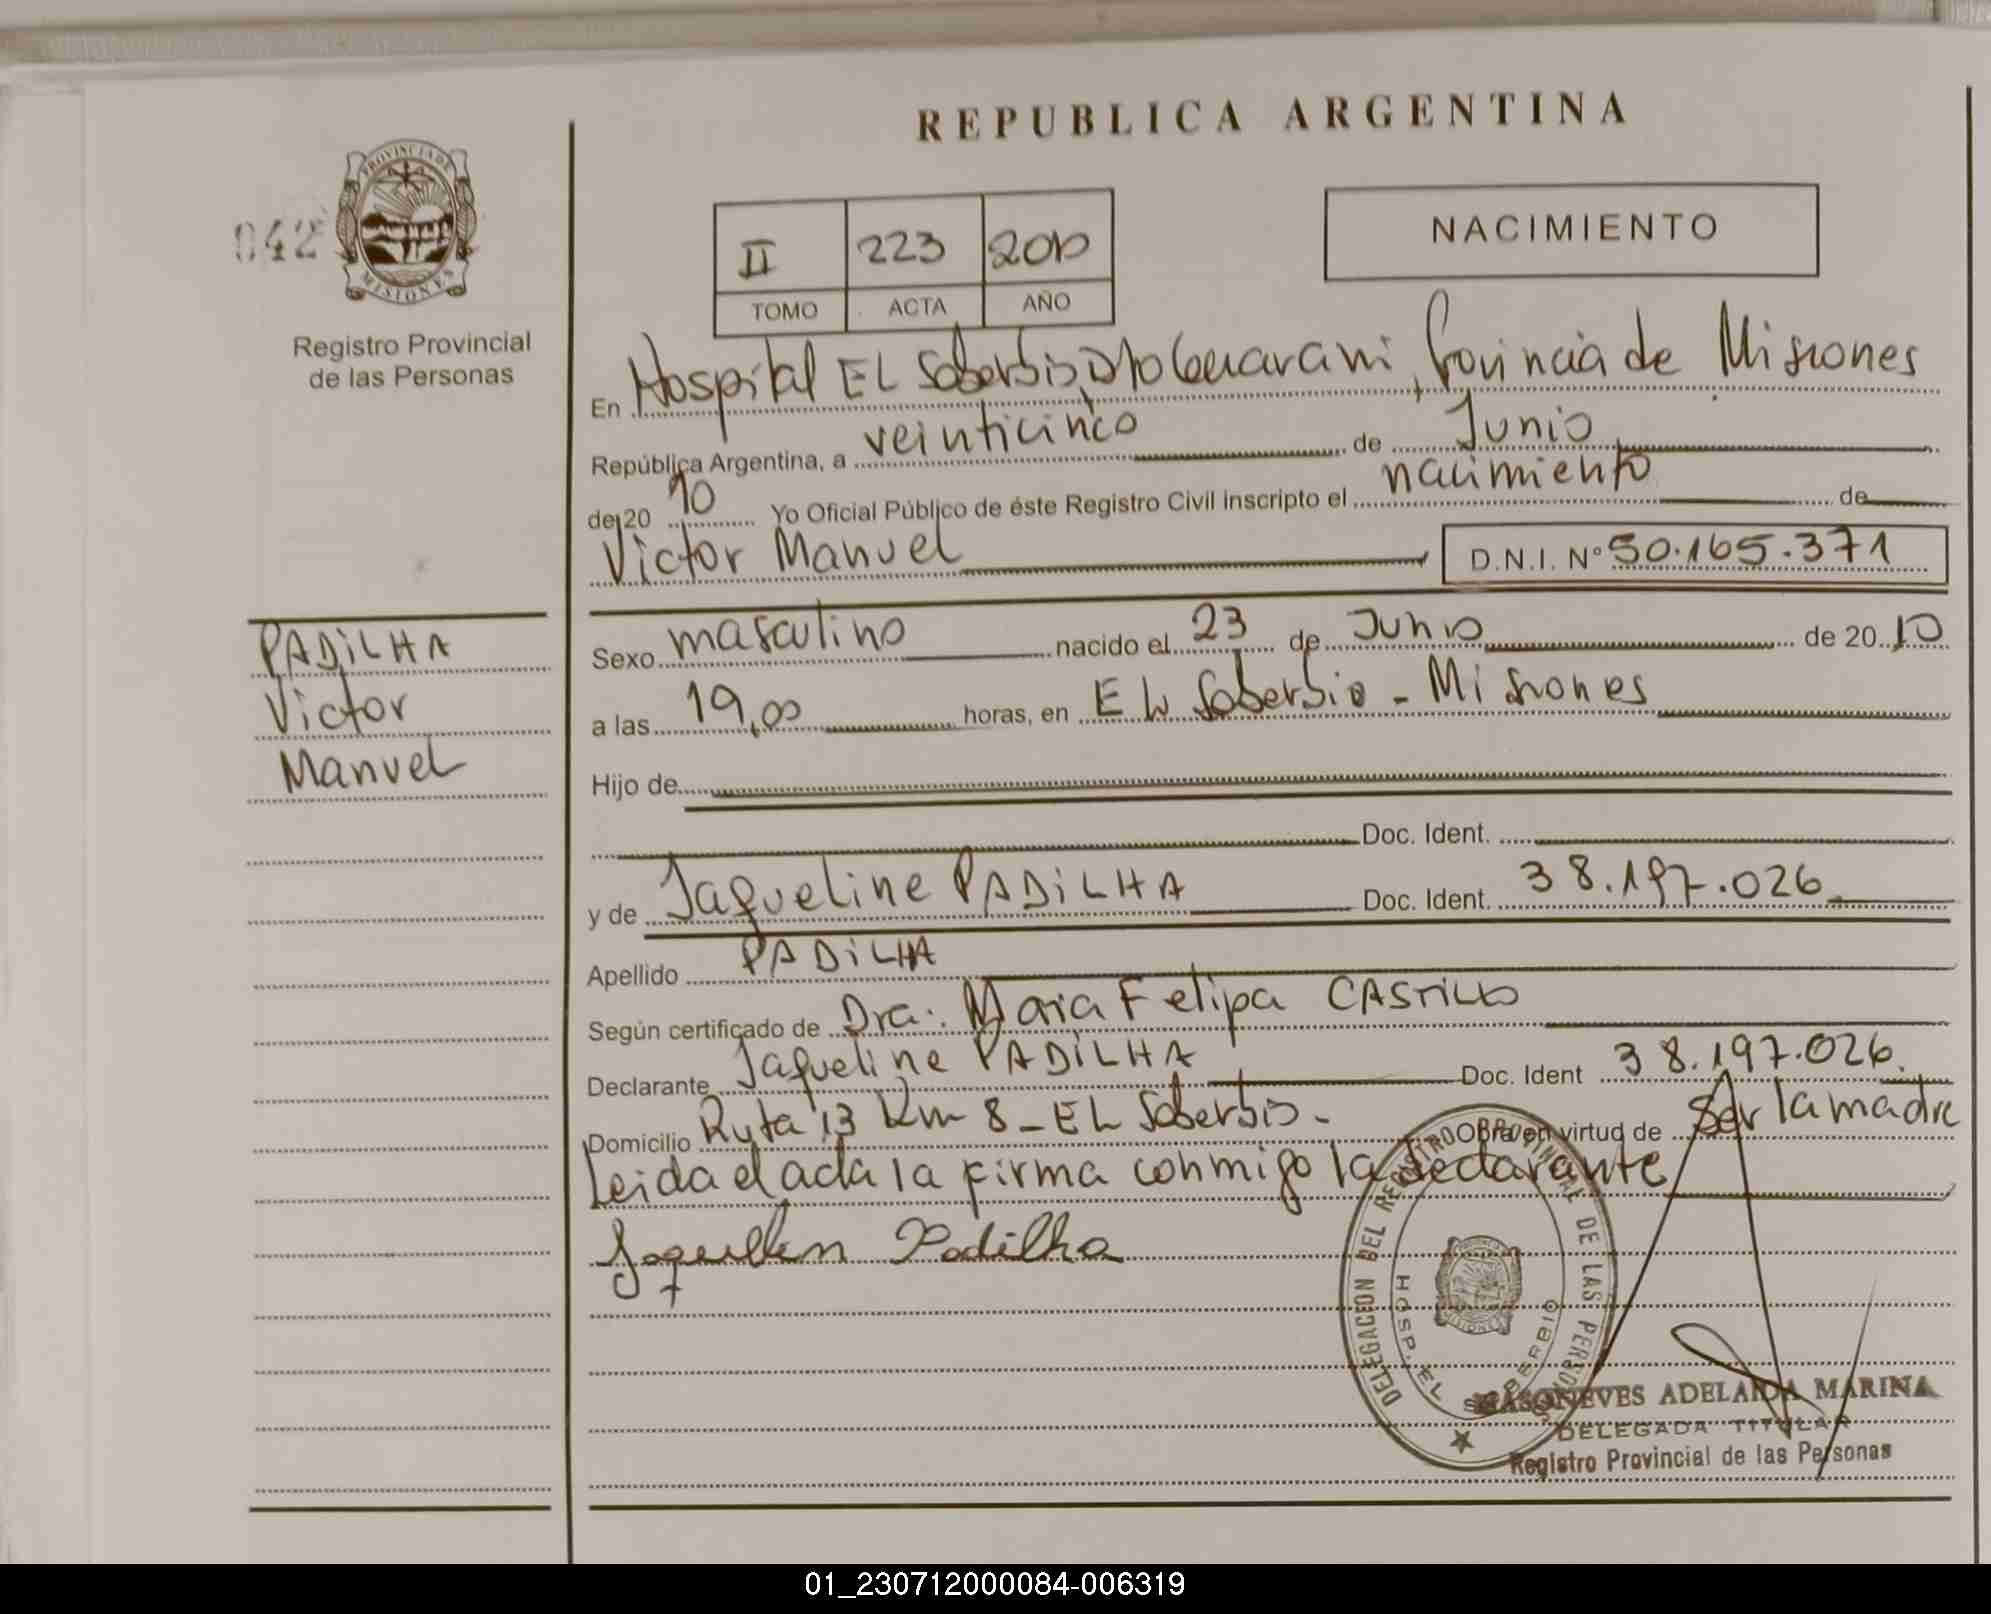 REPUBLICA ARGENTINA
042
PROVINCIA DE
MISIONES
Registro Provincial
de las Personas
II 223 2010
TOMO ACTA AÑO
NACIMIENTO
En Hospital EL Soberbio, Dto Guarani, Provincia de Misiones
República Argentina, a veinticinco de Junio
de 20 10 Yo Oficial Público de éste Registro Civil inscripto el nacimiento de
Victor Manuel D.N.I. Nº 50.165.371
PADiLHA
Victor
Manuel
Sexo masculino nacido el 23 de Junio de 20 10
a las 19,00 horas, en EL Soberbio - Misiones
Hijo de
Doc. Ident.
y de Jaqueline PADiLHA Doc. Ident. 38.197.026
Apellido PADiLHA
Según certificado de Dra. Maria Felipa CASTILLO
Declarante Jaqueline PADILHA Doc. Ident 38.197.026
Domicilio Ruta 13 Km 8 - EL Soberbio - Obra en virtud de Ser la madre
Leida el acta la firma conmigo la declarante
Padilha
DELEGACION DEL REGISTRO PROVINCIAL DE LAS PERSONAS
HOSP. EL SOBERBIO
ADELAIDA MARINA
DELEGADA TITULAR
Registro Provincial de las Personas
01_230712000084-006319